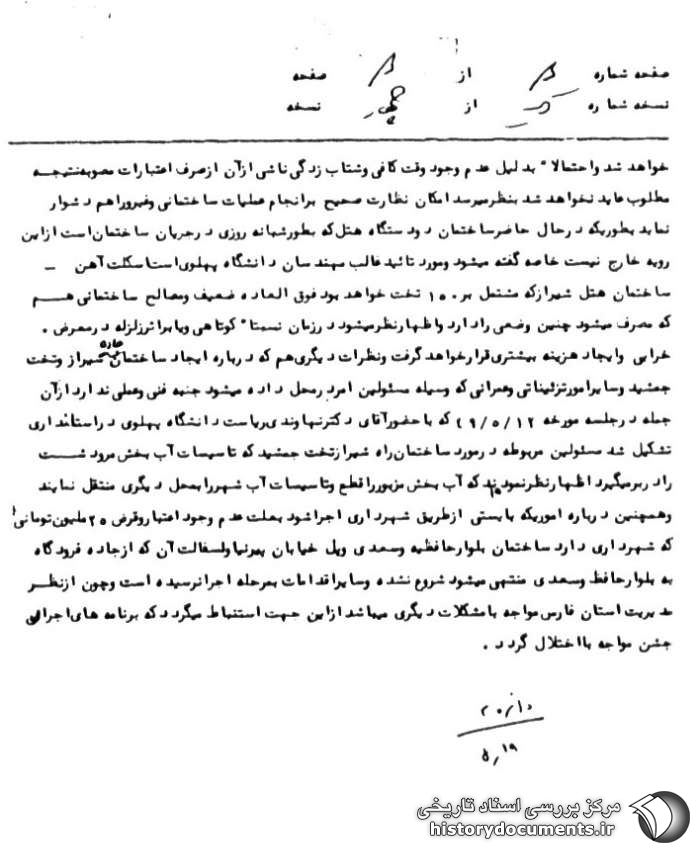 صفحه شماره از صفحه
نسخه شماره از نسخه
خواهد شد واحتمالا" بدلیل عدم وجود وقت کافی وشتاب زدگی ناشی ازآن ازصرف اعتبارات مصوبه نتیجه
مطلوب عاید نخواهد شد بنظرمیرسد امکان نظارت صحیح برانجام عملیات ساختمانی وغیره را هم دشوار
نماید بطوریکه درحال حاضرساختمان دودستگاه هتل که بطورشبانه روزی درجریان ساختمان است ازاین
رویه خارج نیست خاصه گفته میشود ومورد تائید غالب مهندسان دانشگاه پهلوی است اسکلت آهن
ساختمان هتل شیرازکه مشتمل بر۱۵۰ تخت خواهد بود فوق العاده ضعیف ومصالح ساختمانی هم
که مصرف میشود چنین وضعی را دارد واظهارنظرمیشود درزمان نسبتا" کوتاهی ویا براثرزلزله درمعرض
خرابی وایجاد هزینه بیشتری قرارخواهد گرفت ونظرات دیگری هم که درباره ایجاد ساختمان جاده شیراز وتخت
جمشید وسایرامورتزئیناتی وعمرانی که وسیله مسئولین امردرمحل داده میشود جنبه فنی وعملی ندارد ازآن
جمله درجلسه مورخه ۴۹/۵/۱۲ که باحضورآقای دکترنهاوندی ریاست دانشگاه پهلوی دراستانداری
تشکیل شد مسئولین مربوطه درمورد ساختمان راه شیرازتخت جمشید که تاسیسات آب بخش مرودشت
را دربرمیگیرد اظهارنظرنمودند که آب بخش مزبورراقطع وتاسیسات آب شهررا بمحل دیگری منتقل نمایند
وهمچنین درباره اموریکه بایستی ازطریق شهرداری اجراشود بعلت عدم وجود اعتباروقرض ۲۵ ملیون تومانی
که شهرداری دارد ساختمان بلوارحافظیه وسعدی وپل خیابان پیرنیا واسفالت آن که ازجاده فرودگاه
به بلوارحافظ وسعدی منتهی میشود شروع نشده وسایراقدامات بمرحله اجرانرسیده است وچون ازنظر
مدیریت استان فارس مواجه بامشکلات دیگری میباشد ازاین جهت استنباط میگردد که برنامه های اجرائی
جشن مواجه بااختلال گردد .
مرکز بررسی اسناد تاریخی
historydocuments.ir